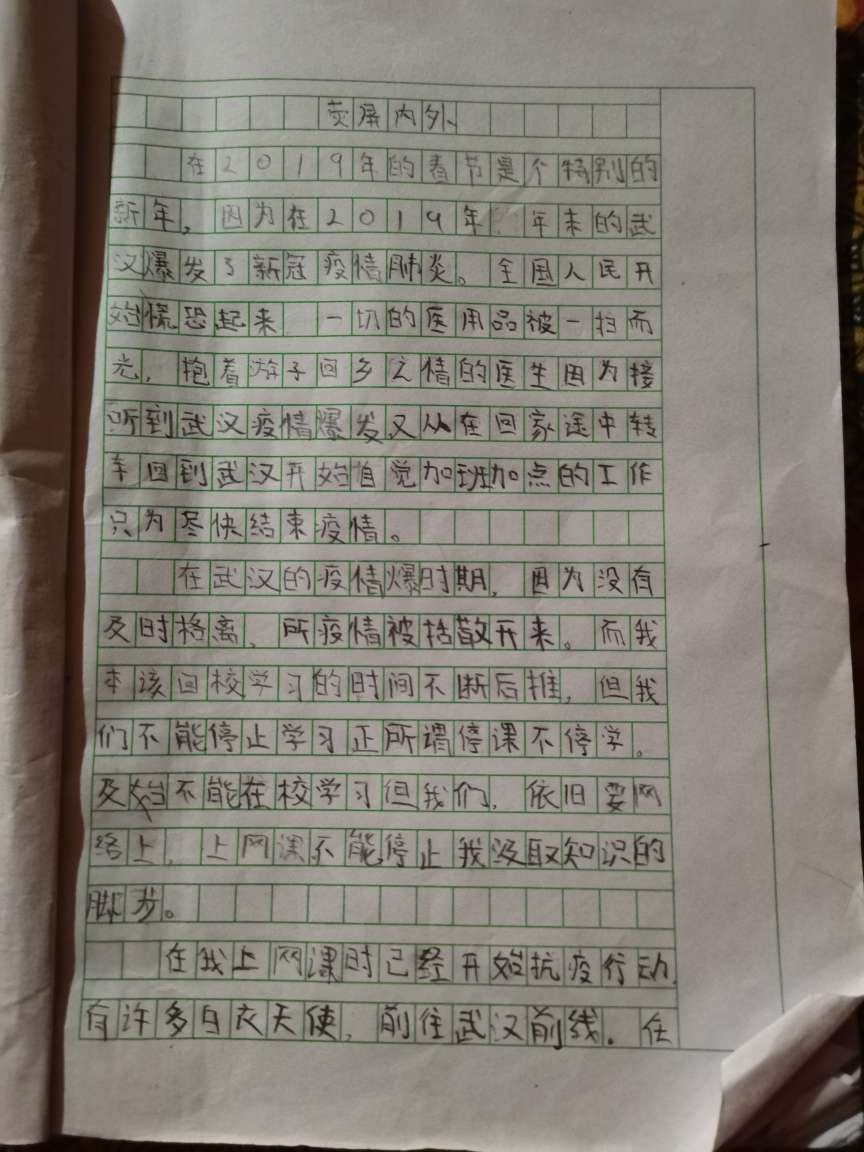 荧屏内外、
在2019年的春节是个特别的
新年，因为在2019年 年末的武
汉爆发了新冠疫情肺炎。全国人民开
始慌恐起来 一切的医用品被一扫而
光，抱着游子回乡之情的医生因为接
听到武汉疫情爆发又从在回家途中转
车回到武汉开始自觉加班加点的工作
只为尽快结束疫情。
在武汉的疫情爆时期，因为没有
及时格离、所疫情被括散开来。而我
本该回校学习的时间不断后推，但我
们不能停止学习正所谓停课不停学。
及始不能在校学习但我们，依旧要网
络上，上网课不能停止我汲取知识的
脚步。
在我上网课时已经开始抗疫行动，
有许多白衣天使，前往武汉前线。任